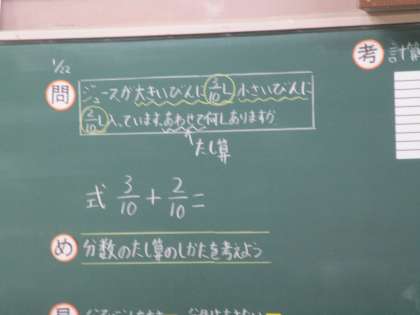 1/22
考 計算
問 ジュースが大きいびんに3/10L 小さいびんに
2/10L入っています。あわせて何Lありますか
たし算
式 3/10 + 2/10 =
め 分数のたし算のしかたを考えよう
見